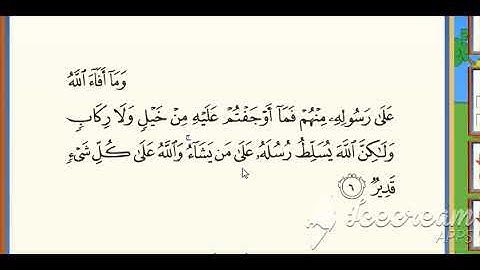 وَمَآ أَفَآءَ ٱللَّهُ
عَلَىٰ رَسُولِهِۦ مِنْهُمْ فَمَآ أَوْجَفْتُمْ عَلَيْهِ مِنْ خَيْلٍ وَلَا رِكَابٍ
وَلَٰكِنَّ ٱللَّهَ يُسَلِّطُ رُسُلَهُۥ عَلَىٰ مَن يَشَآءُ ۚ وَٱللَّهُ عَلَىٰ كُلِّ شَىْءٍ
قَدِيرٌ ٦
Icecream
APPS